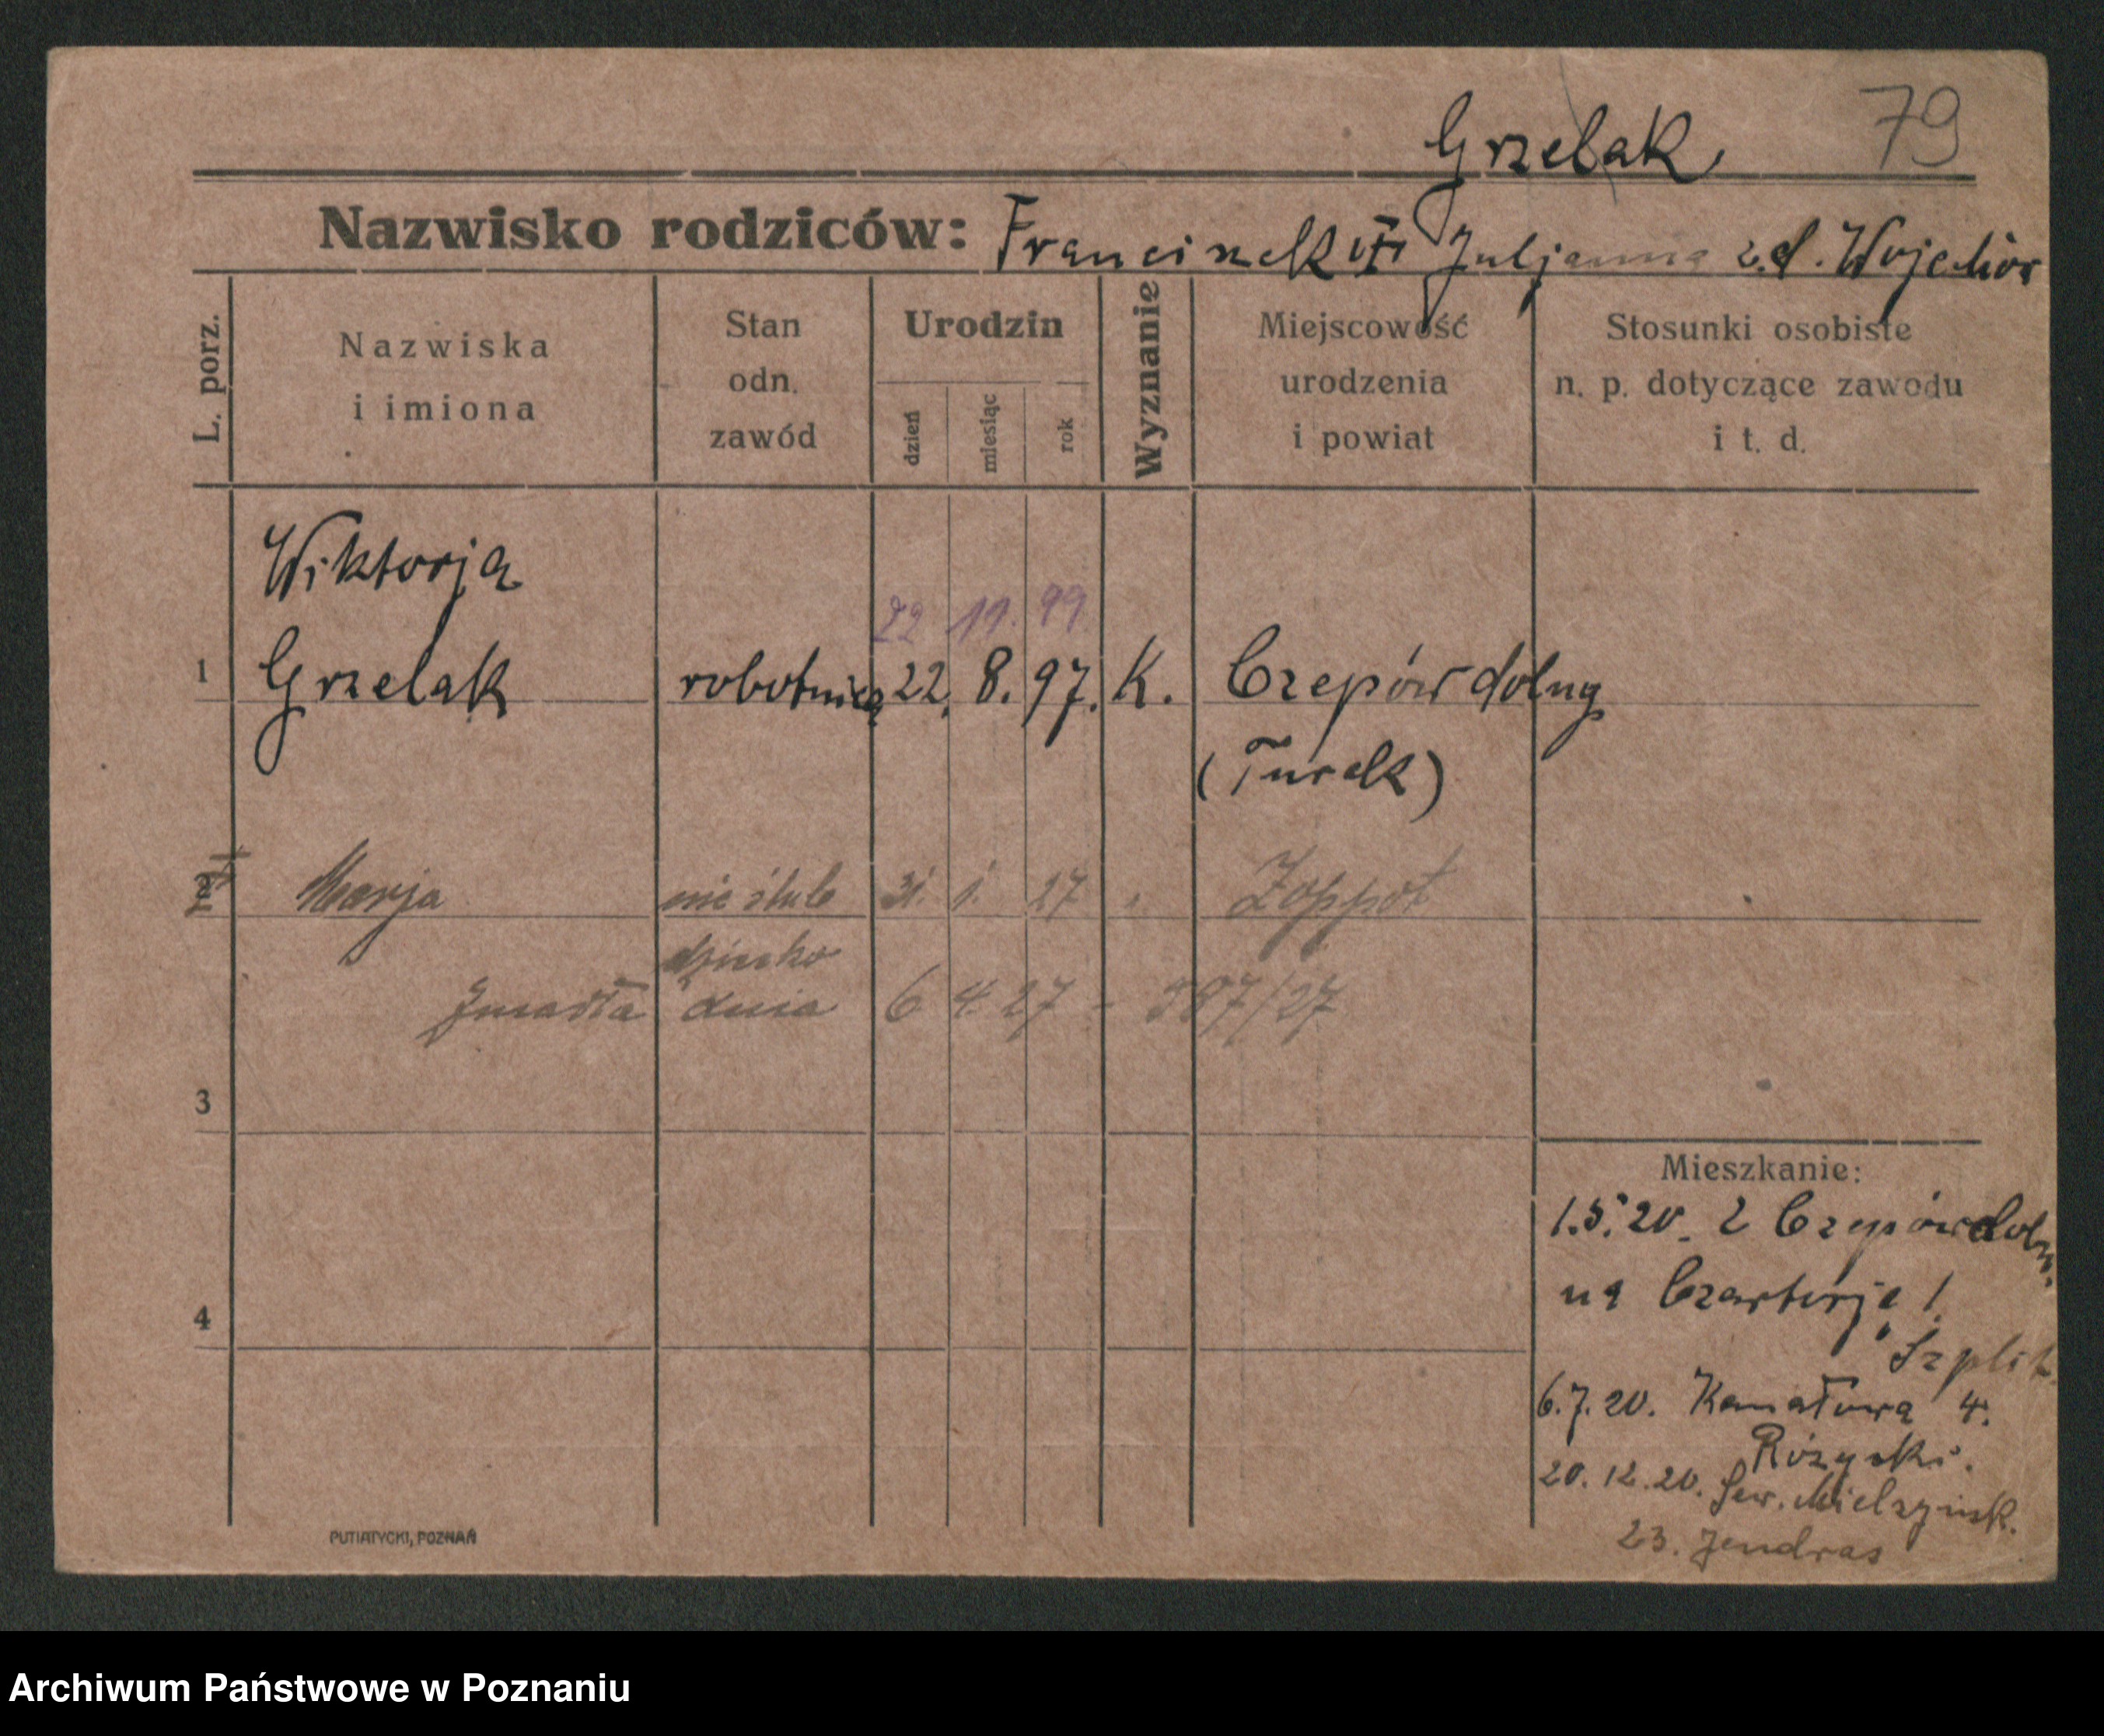 Grzelak
79
Nazwisko rodziców: Franciszek Juljanna z d. Wojchór
L. porz.
Nazwiska
i imiona
Stan
odn.
zawód
Urodzin
dzień
miesiąc
rok
Wyznanie
Miejscowość
urodzenia
i powiat
Stosunki osobiste
n. p. dotyczące zawodu
i t. d.
Wiktorja
22 11. 99
1 Grzelak robotnica 22. 8. 97. K. Czepów dolny
(Turek)
2 Marja nieślub 31. 1. 27 Zoppot
dziecko
Zmarła dnia 6 4 27 - 387/27
3
Mieszkanie:
1.5.20. z Czepów doln.
na Czartorję 1
4
Szplit
6.7.20. Kanałowa 4.
Różycki.
20.12.20. Sew. Mielżyńsk.
23. Jendras
PUTIATYCKI, POZNAŃ
Archiwum Państwowe w Poznaniu